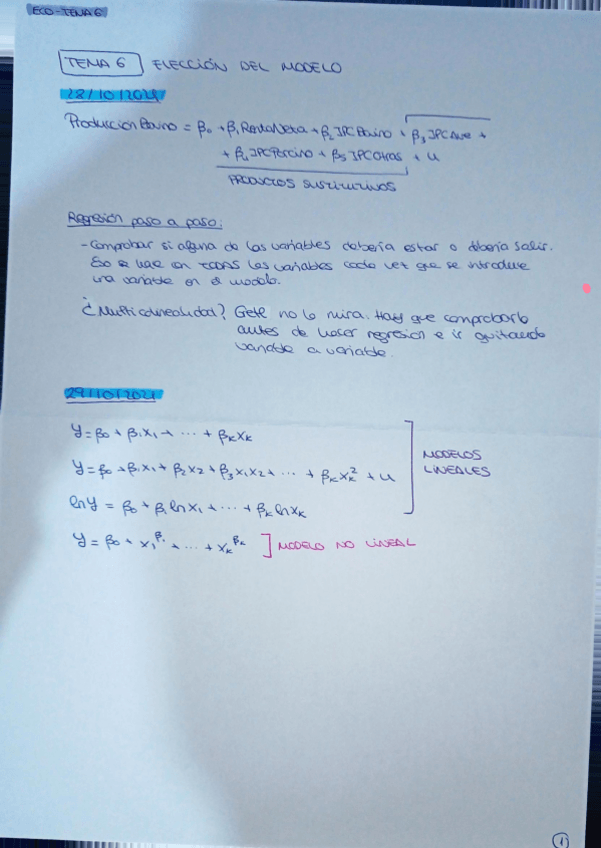 ECO-TEMA 6
TEMA 6 ELECCIÓN DEL MODELO
28/10/2021
Produccion Bovino = β₀ + β₁RentaNeta + β₂IPCBovino + β₃IPCAve +
+ β₄IPCPorcino + β₅IPCOtras + u
PRODUCTOS SUSTITUTIVOS
Regresión paso a paso:
- Comprobar si alguna de las variables debería estar o debería salir.
Eso se hace con TODAS las variables cada vez que se introduce
una variable en el modelo.
¿Multicolinealidad? Gretl no lo mira. Hay que comprobarlo
antes de hacer regresión e ir quitando
variable a variable.
29/10/2021
y = β₀ + β₁x₁ + ... + βₖxₖ
y = β₀ + β₁x₁ + β₂x₂ + β₃x₁x₂ + ... + βₖxₖ² + u
MODELOS
LINEALES
ln y = β₀ + β₁ ln x₁ + ... + βₖ ln xₖ
y = β₀ + x₁^β₁ + ... + xₖ^βₖ ] MODELO NO LINEAL
1